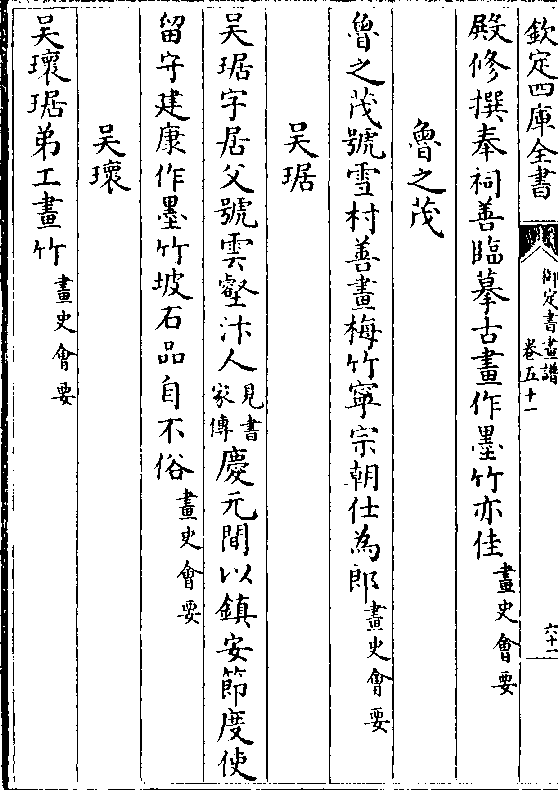 欽定四庫全書
御定書畫譜
卷五十一
六十一
殿修撰奉祠善臨摹古畫作墨竹亦佳畫史會要
魯之茂
魯之茂號雪村善畫梅竹寧宗朝仕為郎畫史會要
吴琚
吴琚字居父號雲壑汴人見書家傳慶元間以鎮安節度使
留守建康作墨竹坡石品自不俗畫史會要
吴瓌
吴瓌琚弟工畫竹畫史會要